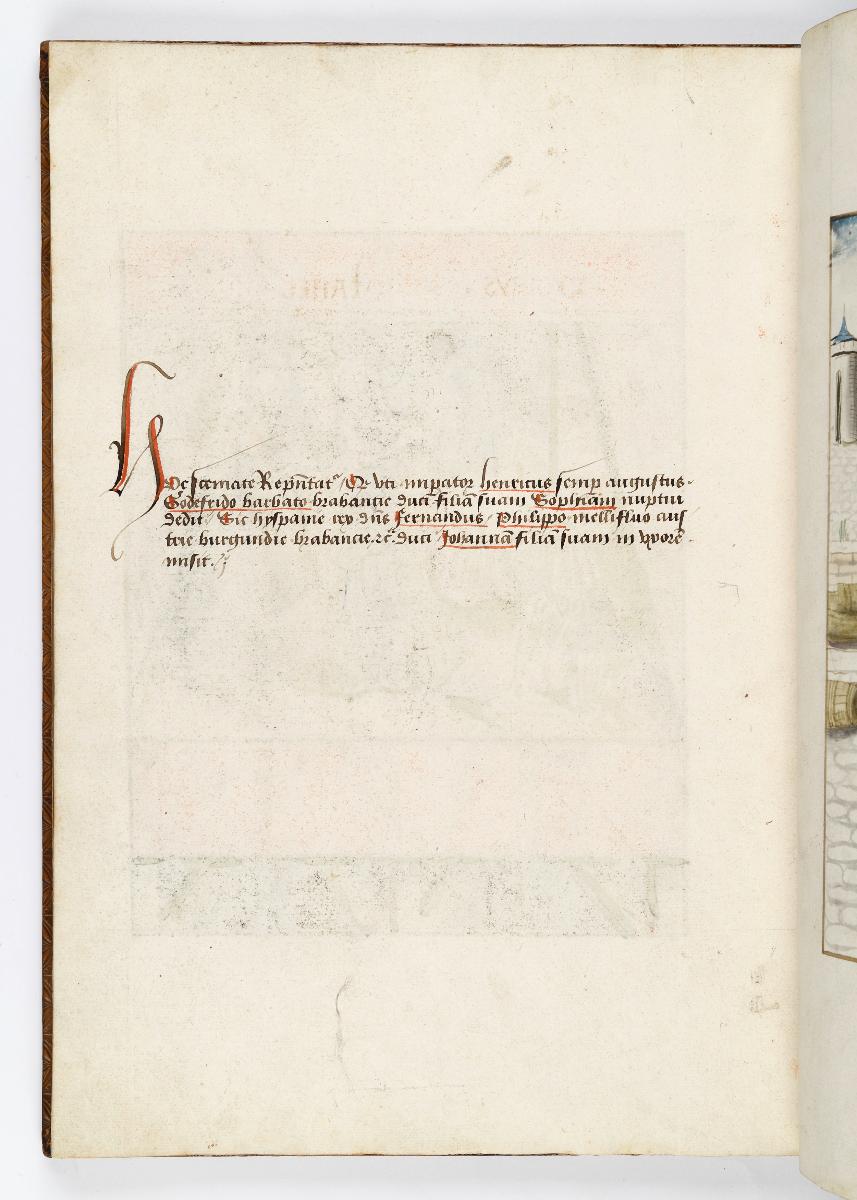 Hoc scemate Repñtat᷒ / Qr vti imp̱ator henricus semp̱ augustus ·
Godefrido barbato brabantie duci filiā suam Sophiam nuptui
dedit / Sic hyspanie rex dñs Fernandus / Philippo mellifluo aus
trie burgundie brabancie ·⁊c̃· duci Johannā filiā suam in vxorē ·
misit ·/